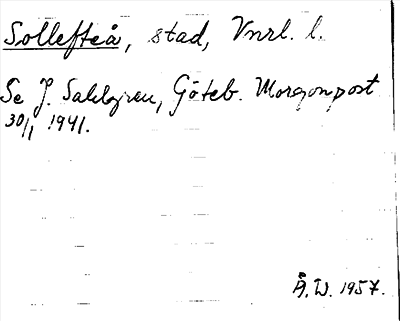 Sollefteå, stad, Vnrl. l.
Se J. Sahlgren, Göteb. Morgonpost
30/1 1941.
Å.W. 1957.